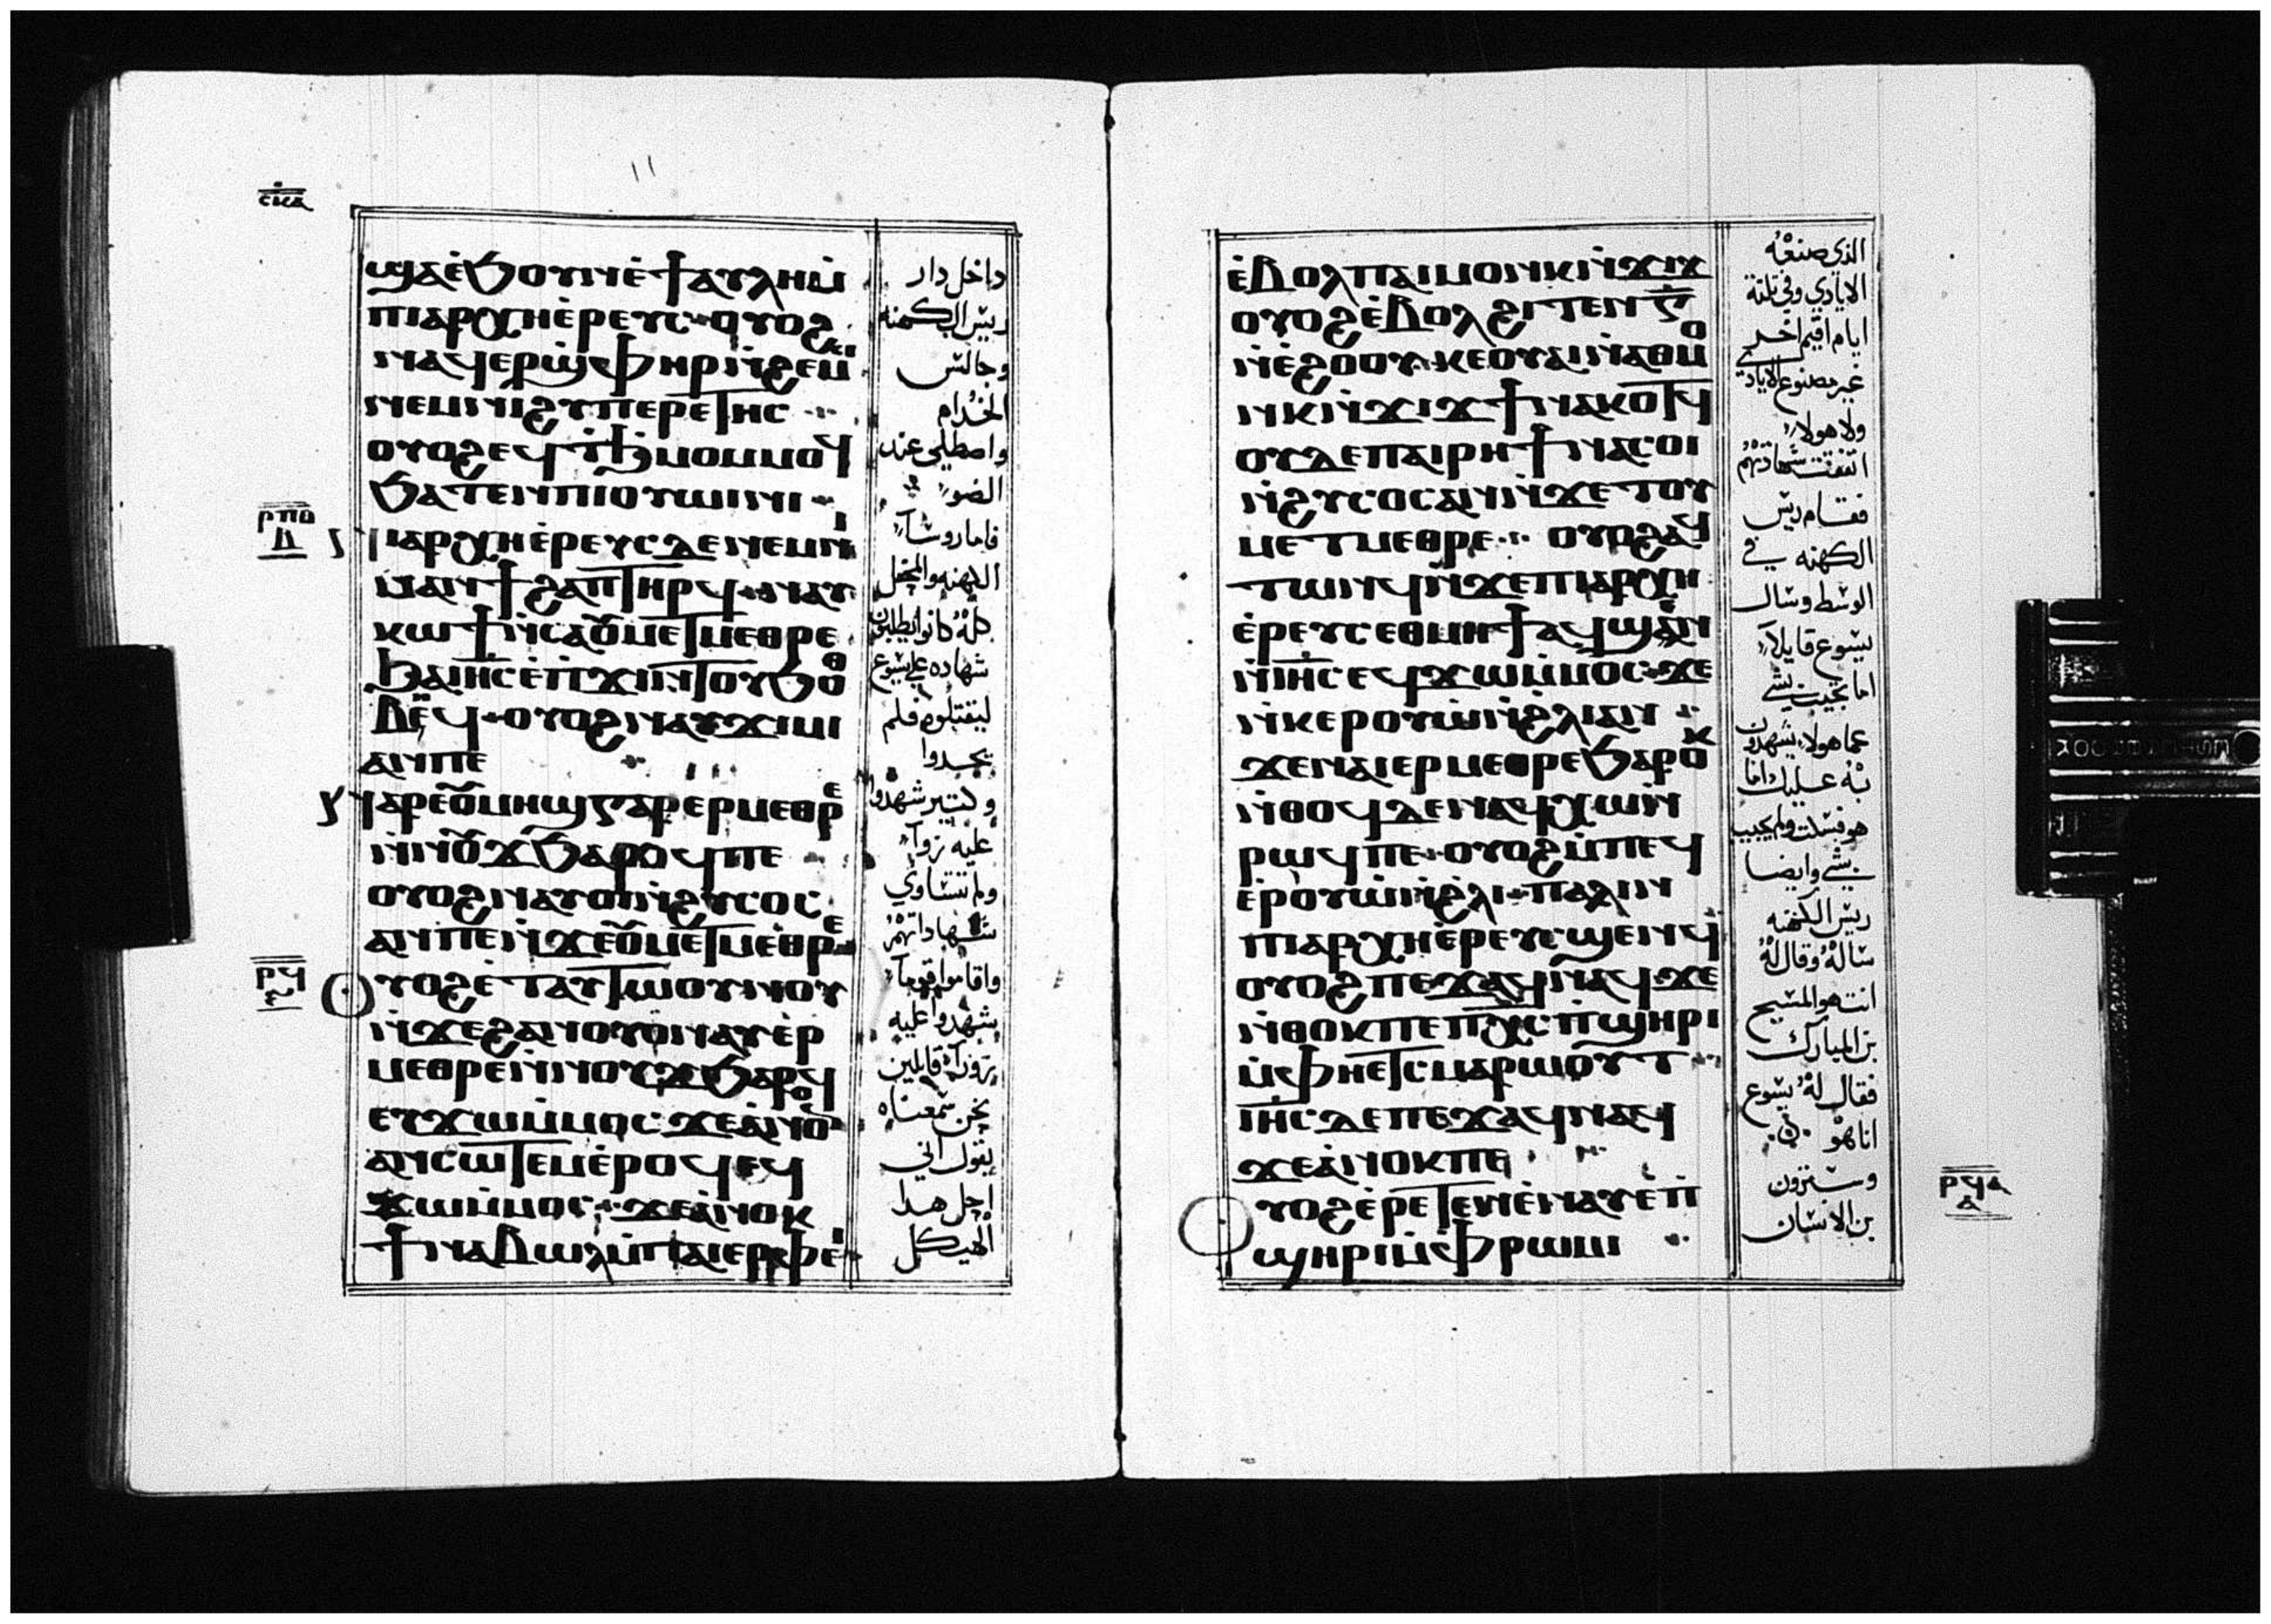 ١١
ⲥ̅ⲕ̅ⲁ̅
ϣⲁⲉ̀ϧⲟⲩⲛⲉ̀ϯⲁⲩⲗⲏⲙ̀
ⲡⲓⲁⲣⲭⲏⲉ̀ⲣⲉⲩⲥ ⲟⲩⲟϩ
ⲛⲁϥⲉⲣϣⲫⲏⲣⲛ̀ϩⲉⲙⲕⲓ
ⲛⲉⲙⲛⲓϩⲩⲡⲉⲣⲉⲧⲏⲥ
ⲟⲩⲟϩⲉϥϯϧⲙⲟⲙⲙⲟϥ
ϧⲁⲧⲉⲛⲡⲓⲟⲩⲱⲓⲛⲓ
ⲣ̅ⲡ̅ⲑ̅
ⲡⲓⲁⲣⲭⲏⲉ̀ⲣⲉⲩⲥⲇⲉⲛⲉⲙⲡⲓ
ⲙⲁⲛϯϩⲁⲡⲧⲏⲣϥ ⲛⲁⲩ
ⲕⲱϯⲛ̀ⲥⲁⲟⲩⲙⲉⲧⲙⲉⲑⲣⲉ
ϧⲁⲓⲏ̅ⲥ̅ⲉ̀ⲡϫⲓⲛⲧⲟⲩϧⲟⲑ
ⲃⲉϥ ⲟⲩⲟϩⲛⲁⲩϫⲓⲙⲓ
ⲁⲛⲡⲉ
ⲛⲁⲣⲉⲟⲩⲙⲏϣⲅⲁⲣⲉⲣⲙⲉⲑⲣⲉ
ⲛ̀ⲛⲟⲩϫϧⲁⲣⲟϥⲡⲉ
ⲟⲩⲟϩⲛⲁⲩⲟⲓⲛ̀ϩⲩⲥⲟⲥ
ⲁⲛⲡⲉⲛ̀ϫⲉⲟⲩⲙⲉⲧⲙⲉⲑⲣⲉ
ⲣ̅ϥ̅
ⲟⲩⲟϩⲉ̀ⲧⲁⲩⲧⲱⲟⲩⲛⲟⲩ
ⲛ̀ϫⲉϩⲁⲛⲟⲩⲟⲛⲛⲁⲩⲉ̀ⲣ
ⲙⲉⲑⲣⲉⲛ̀ⲛⲟⲩϫϧⲁⲣⲟϥ
ⲉⲩϫⲱⲙ̀ⲙⲟⲥ ϫⲉⲁ̀ⲛⲟⲛ
ⲁⲛⲥⲱⲧⲉⲙⲉ̀ⲣⲟϥⲉϥ
ϫⲱⲙ̀ⲙⲟⲥ ϫⲉⲁ̀ⲛⲟⲕ
ϯⲛⲁⲃⲱⲗⲙ̀ⲡⲁⲓⲉⲣⲫⲉⲓ
داخل دار
ريس الكهنه
وجالس
الخدام
واصطلى عند
الضو
فاما روسآ
الكهنه والمحفل
كله كانوا يطلبون
شهاده على يسوع
ليقتلوه فلم
يجدوا
وكتير شهدوا
عليه زورآ
ولم تتساوي
شهاداتهم
واقاموا قومآ
يشهدوا عليه
بزورآ قايلين
نحن سمعناه
يقول اني
احل هدا
الهيكل
ⲉ̀ⲃⲟⲗⲡⲁⲓⲙⲟⲩⲛⲕⲛ̀ϫⲓϫ
ⲟⲩⲟϩⲉ̀ⲃⲟⲗϩⲓⲧⲉⲛⲅ̅
ⲛ̀ⲉ̀ϩⲟⲟⲩ ⲕⲉⲟⲩⲁⲓⲛ̀ⲁⲑⲙⲟ
ⲩⲛⲕⲛ̀ϫⲓϫϯⲛⲁⲕⲟⲧϥ
ⲟⲩⲇⲉⲡⲁⲓⲣⲏϯⲛⲁⲥⲟⲓ
ⲛ̀ϩⲩⲥⲟⲥⲁⲛⲛ̀ϫⲉⲧⲟⲩ
ⲙⲉⲧⲙⲉⲑⲣⲉ ⲟⲩⲟϩⲁϥ
ⲧⲱⲛϥⲛ̀ϫⲉⲡⲓⲁⲣⲭⲏ
ⲉ̀ⲣⲉⲩⲥⲉⲑⲙⲏϯⲁϥϣⲉⲛ
ⲛ̀ⲓⲏ̅ⲥ̅ⲉϥϫⲱⲙ̀ⲙⲟⲥ ϫⲉ
ⲛ̀ⲕⲉⲣⲟⲩⲱⲛ̀ϩⲗⲓⲁⲛ
ϫⲉⲛⲁⲓⲉⲣⲙⲉⲑⲣⲉϧⲁⲣⲟⲕ
ⲛ̀ⲑⲟϥⲇⲉⲛⲁϥⲭⲱⲛ̀
ⲣⲱϥⲡⲉ ⲟⲩⲟϩⲙ̀ⲡⲉϥ
ⲉ̀ⲣⲟⲩⲱⲛ̀ϩⲗⲓ ⲡⲁⲗⲓⲛ
ⲡⲓⲁⲣⲭⲏⲉ̀ⲣⲉⲩⲥϣⲉⲛϥ
ⲟⲩⲟϩⲡⲉϫⲁϥⲛⲁϥϫⲉ
ⲛ̀ⲑⲟⲕⲡⲉⲡⲭ̅ⲥ̅ⲡ̀ϣⲏⲣⲓ
ⲙ̀ⲫⲏⲉⲧⲥⲙⲁⲣⲱⲟⲩⲧ
ⲓⲏ̅ⲥ̅ⲇⲉⲡⲉϫⲁϥⲛⲁϥ
ϫⲉⲁ̀ⲛⲟⲕⲡⲉ
ⲟⲩⲟϩⲉ̀ⲣⲉⲧⲉⲛⲉ̀ⲛⲁⲩⲉ̀ⲡ̀
ϣⲏⲣⲓⲙ̀ⲫⲣⲱⲙⲓ
الذي صنعه
الايادي وفي تلته
ايام اقيم اخر
غير مصنوع الايادي
ولا هولا
اتفقت شهادتهم
فقام ريس
الكهنه في
الوسط وسال
يسوع قايلآ
اما تجيب بشي
عما هولاء يشهدون
به عليك اما
هو فسكت ولم يجيب
بشي وايضا
ريس الكهنه
ساله وقال له
انت هو المسيح
بن المبارك
فقال له يسوع
انا هو
وسترون
بن الانسان
ⲣ̅ϥ̅ⲁ̅